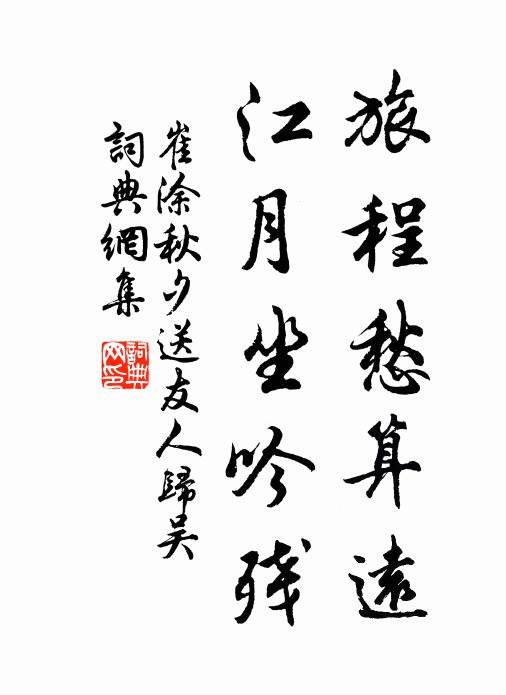 旅程愁算遠
江月坐吟残
崔涂秋夕送友人歸吴
詞典網集
詞典网印